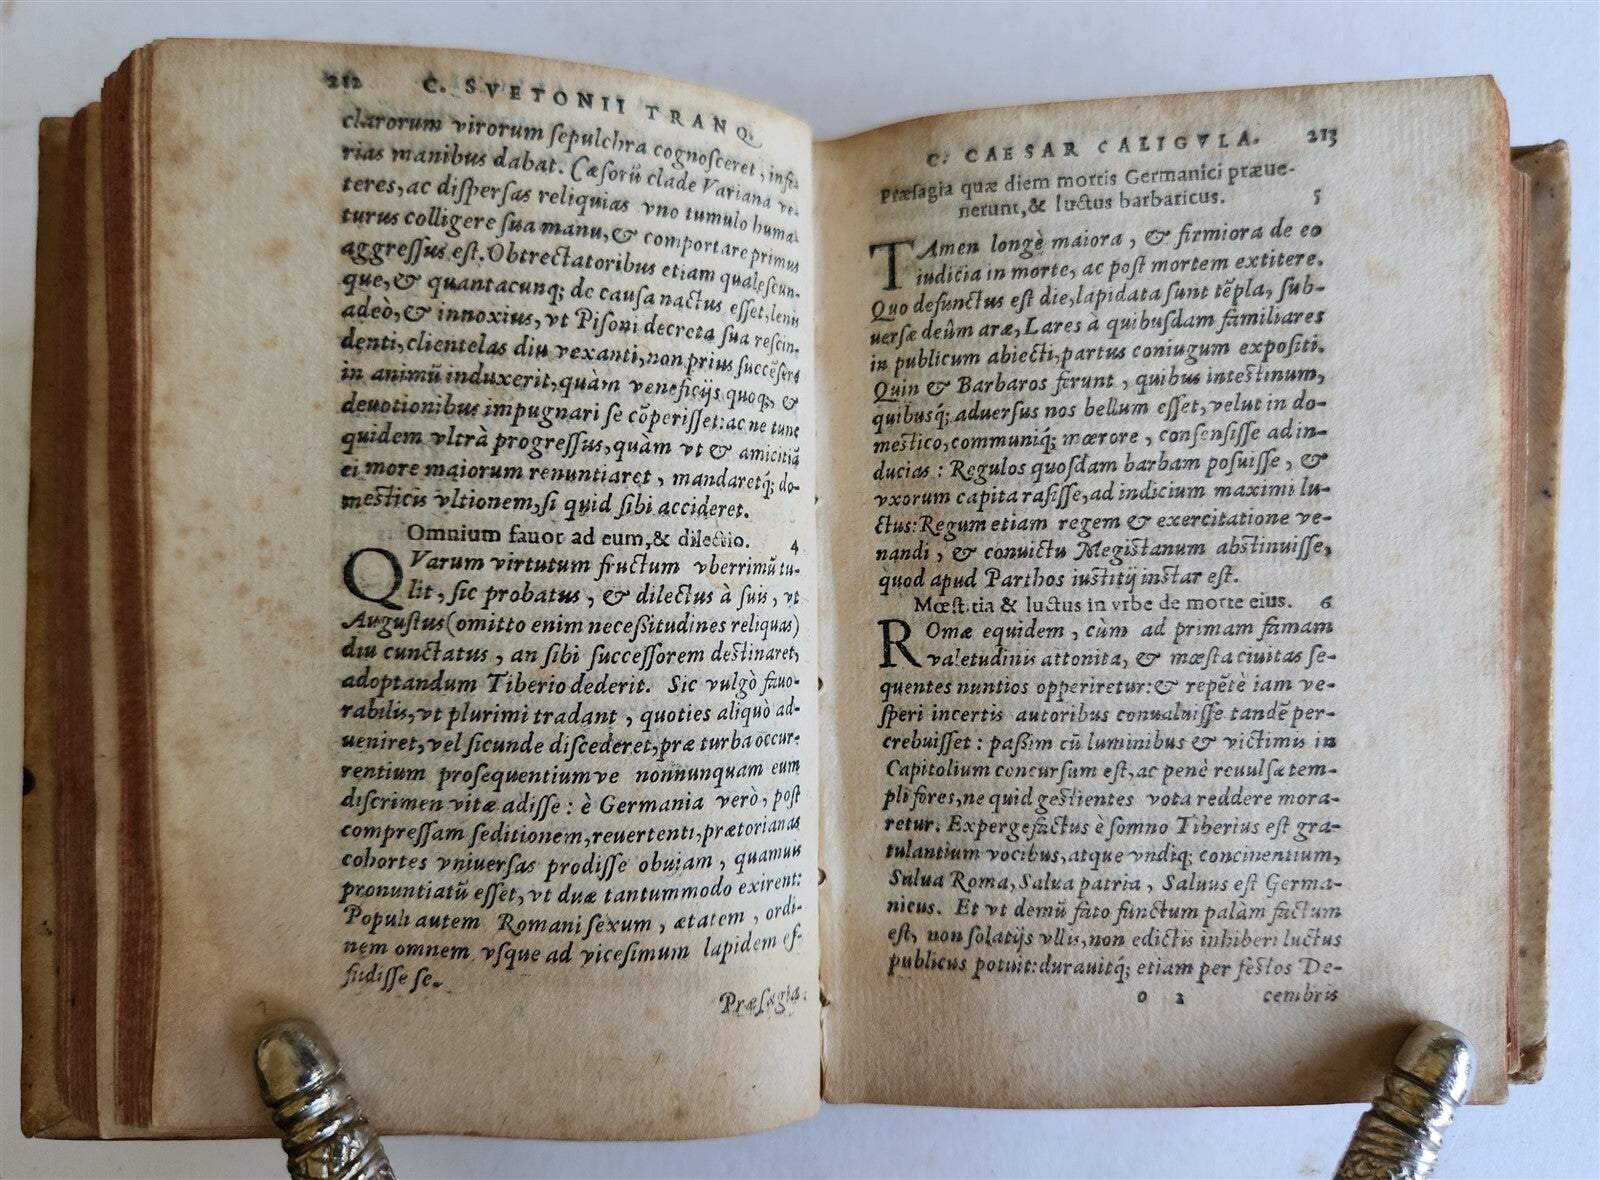 212 C. SVETONII TRANQ.
clarorum virorum ſepulchra cognoſceret, infe-
rias manibus dabat. Cæſorũ clade Variana ve-
teres, ac diſperſas reliquias vno tumulo huma-
turus colligere ſua manu, & comportare primus
aggreſſus eſt. Obtrectatoribus etiam qualeſcun-
que, & quantacunq; de cauſa nactus eſſet, lenis
adeò, & innoxius, vt Piſoni decreta ſua reſcin-
denti, clientelas diu vexanti, non prius ſuccẽſere
in animũ induxerit, quàm veneficijs quoq; &
deuotionibus impugnari ſe cõperiſſet: ac ne tunc
quidem vltrà progreſſus, quàm vt & amicitiã
ei more maiorum renuntiaret, mandaretq́; do-
meſticis vltionem, ſi quid ſibi accideret.
Omnium fauor ad eum, & dilectio. 4
QVarum virtutum fructum vberrimũ tu-
lit, ſic probatus, & dilectus à ſuis, vt
Auguſtus (omitto enim neceßitudines reliquas)
diu cunctatus, an ſibi ſucceſſorem deſtinaret,
adoptandum Tiberio dederit. Sic vulgò fauo-
rabilis, vt plurimi tradant, quoties aliquò ad-
ueniret, vel ſicunde diſcederet, præ turba occur-
rentium proſequentiumve nonnunquam eum
diſcrimen vitæ adiſſe: è Germania verò, poſt
compreſſam ſeditionem, reuertenti, prætorianas
cohortes vniuerſas prodiſſe obuiam, quamuis
pronuntiatũ eſſet, vt duæ tantummodo exirent:
Populi autem Romani ſexum, ætatem, ordi-
nem omnem vſque ad viceſimum lapidem ef-
fudiſſe ſe.
Præſagia
C. CAESAR CALIGVLA. 213
Præſagia quæ diem mortis Germanici præue-
nerunt, & luctus barbaricus. 5
TAmen longè maiora, & firmiora de eo
iudicia in morte, ac poſt mortem extitere.
Quo defunctus eſt die, lapidata ſunt tẽpla, ſub-
uerſæ deûm aræ, Lares à quibuſdam familiares
in publicum abiecti, partus coniugum expoſiti.
Quin & Barbaros ferunt, quibus inteſtinum,
quibuſq́; aduerſus nos bellum eſſet, velut in do-
meſtico, communiq́; mœrore, conſenſiſſe ad in-
ducias: Regulos quoſdam barbam poſuiſſe, &
vxorum capita raſiſſe, ad indicium maximi lu-
ctus: Regum etiam regem & exercitatione ve-
nandi, & conuictu Megiſtanum abſtinuiſſe,
quod apud Parthos iuſtitij inſtar eſt.
Mœſtitia & luctus in vrbe de morte eius. 6
ROmæ equidem, cùm ad primam famam
valetudinis attonita, & mœſta ciuitas ſe-
quentes nuntios opperiretur: & repẽtè iam ve-
ſperi incertis autoribus conualuiſſe tandẽ per-
crebuiſſet: paßim cũ luminibus & victimis in
Capitolium concurſum eſt, ac penè reuulſæ tem-
pli fores, ne quid geſtientes vota reddere mora-
retur. Expergefactus è ſomno Tiberius eſt gra-
tulantium vocibus, atque vndiq; concinentium,
Salua Roma, Salua patria, Saluus eſt Germa-
nicus. Et vt demũ fato functum palàm factum
eſt, non ſolatijs vllis, non edictis inhiberi luctus
publicus potuit: durauitq́; etiam per feſtos De-
o 2 cembris